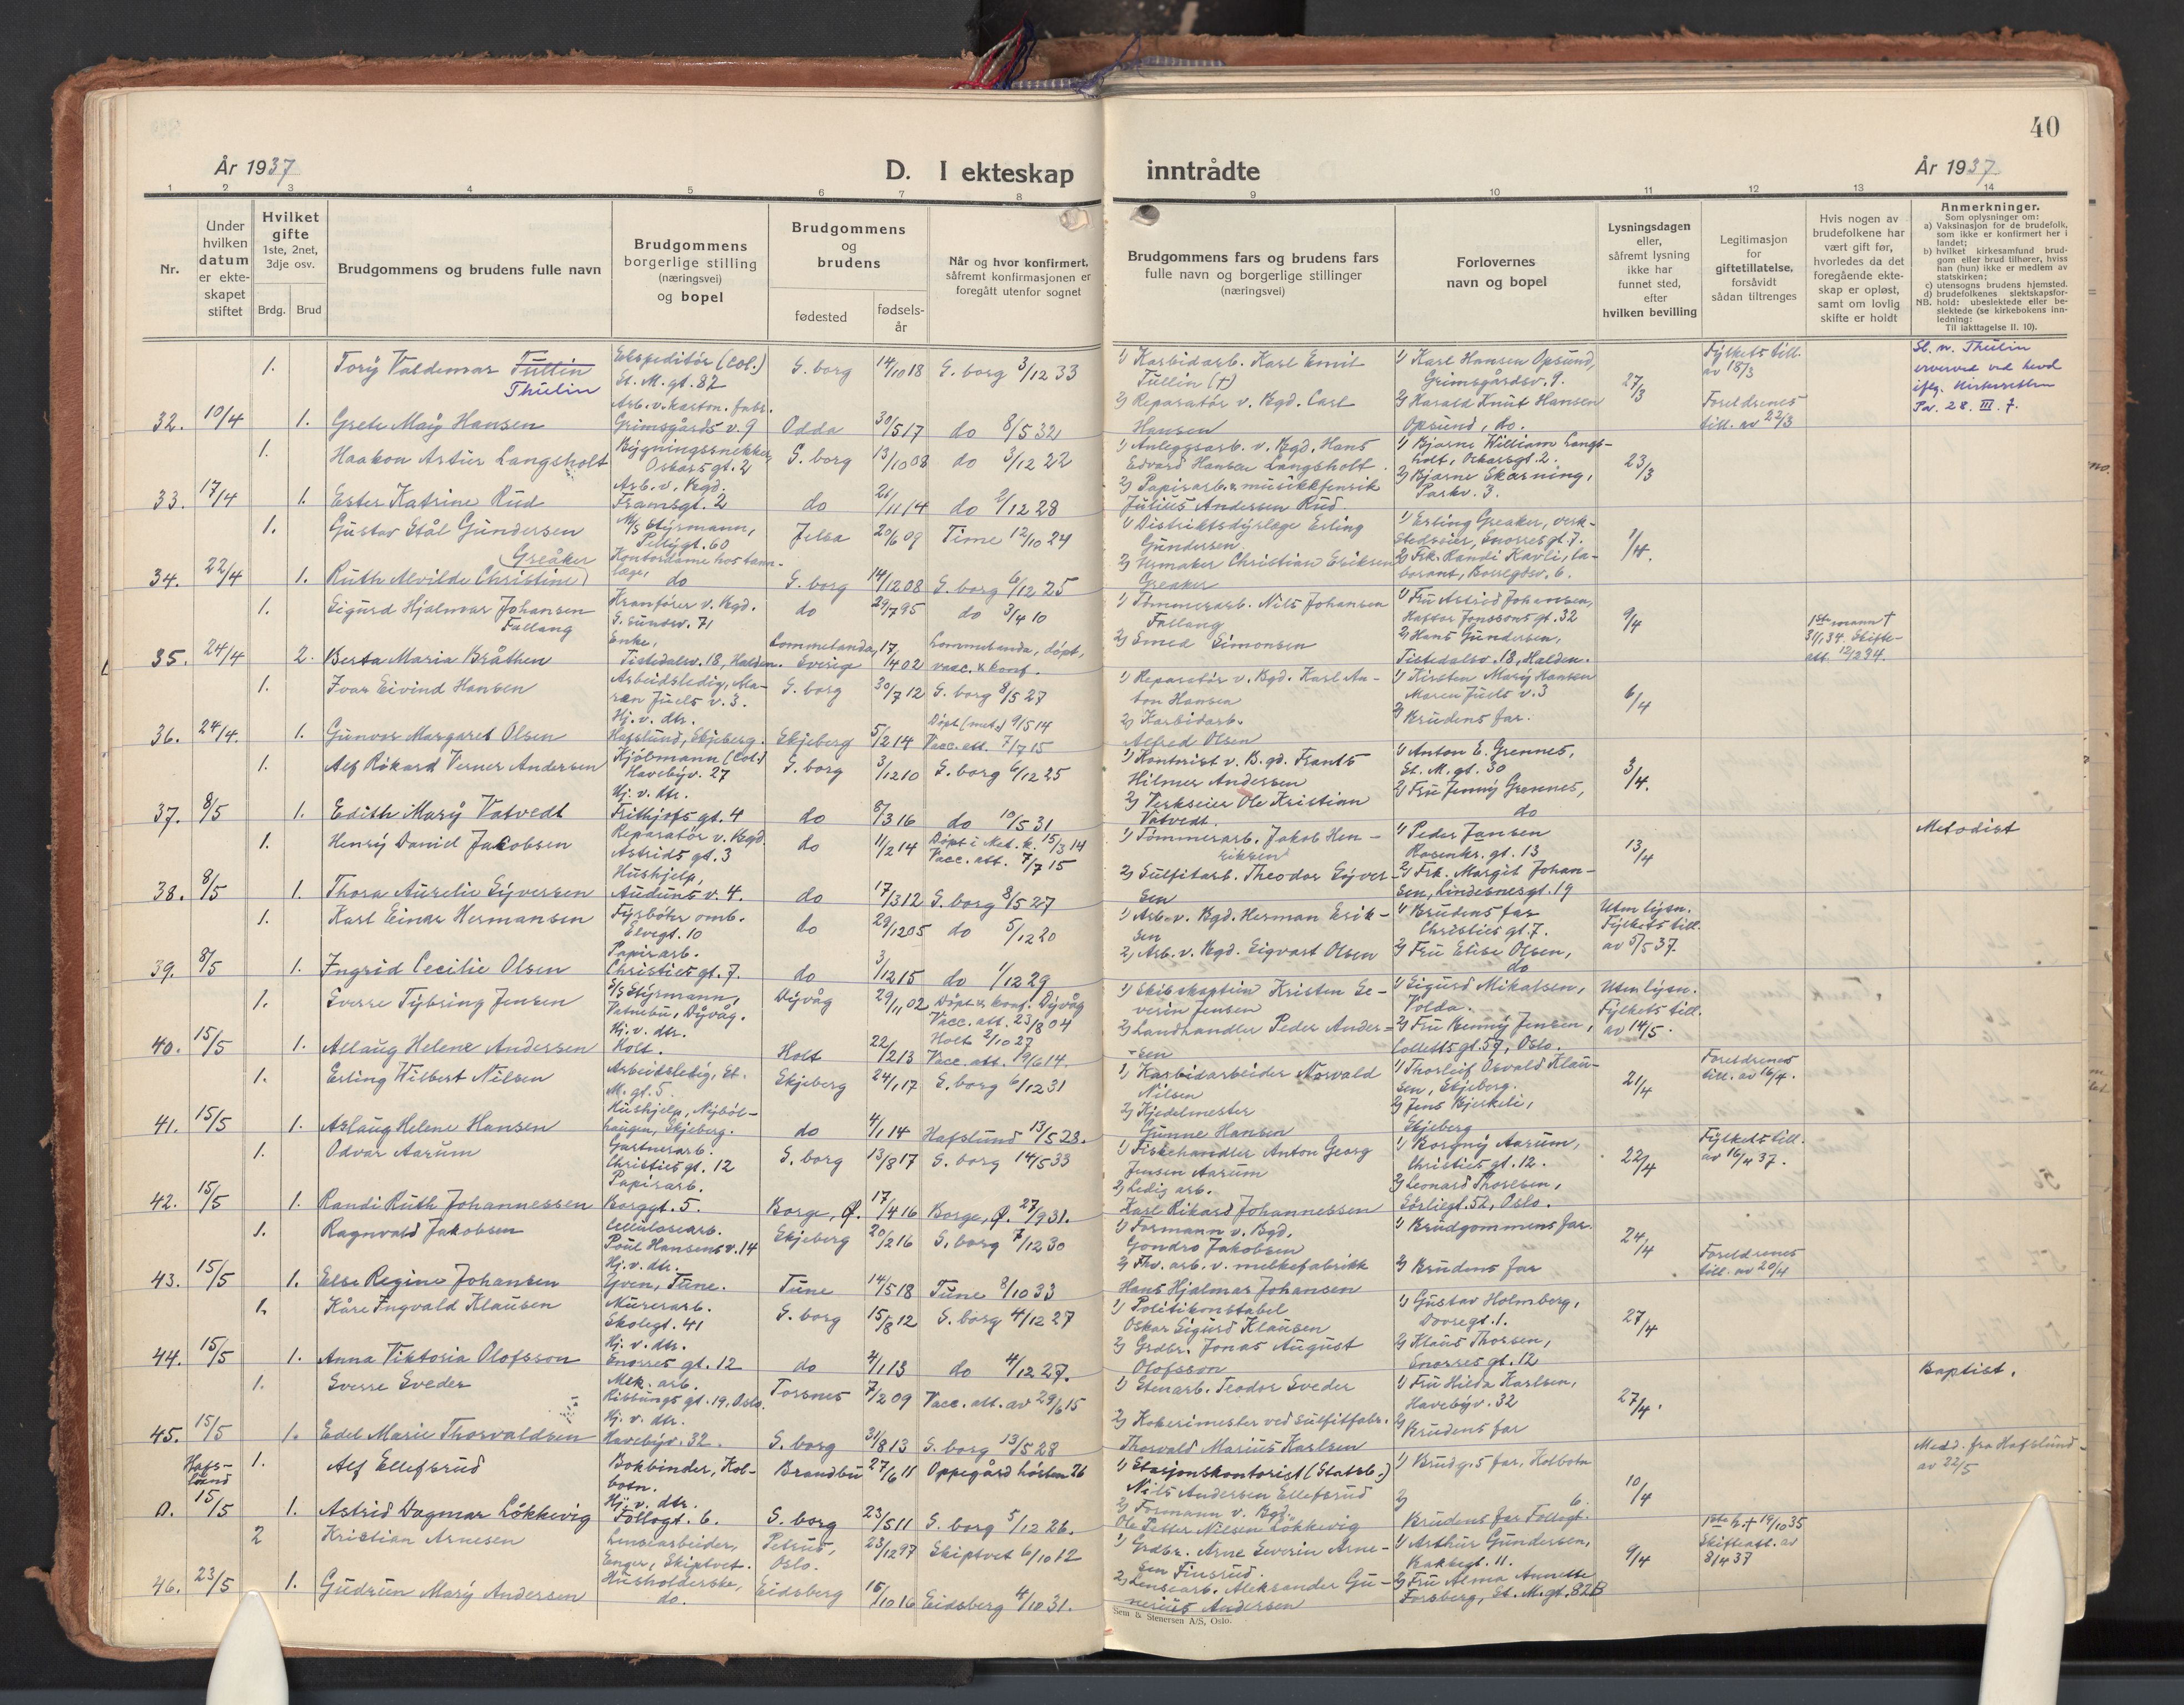 40
År 1937
D. I ekteskap inntrådte
År 1937
1 2 3 4 5 6 7 8 9 10 11 12 13 14
Nr.
Under hvilken datum er ekteskapet stiftet
Hvilket gifte 1ste, 2net, 3dje osv.
Brdg. Brud
Brudgommens og brudens fulle navn
Brudgommens borgerlige stilling (næringsvei) og bopel
Brudgommens og brudens
fødested
fødselsår
Når og hvor konfirmert, såfremt konfirmasjonen er foregått utenfor sognet
Brudgommens fars og brudens fars fulle navn og borgerlige stillinger (næringsvei)
Forlovernes navn og bopel
Lysningsdagen eller, såfremt lysning ikke har funnet sted, efter hvilken bevilling
Legitimasjon for giftetillatelse, forsåvidt sådan tiltrenges
Hvis nogen av brudefolkene har vært gift før, hvorledes da det foregående ekteskap er opløst, samt om lovlig skifte er holdt
Anmerkninger.
Som oplysninger om:
a) Vaksinasjon for de brudefolk, som ikke er konfirmert her i landet;
b) hvilket kirkesamfund brudgom eller brud tilhører, hviss han (hun) ikke er medlem av statskirken;
c) utensogns brudens hjemsted.
d) brudefolkenes slektskapsforhold: ubeslektede eller beslektede (se kirkebokens innledning:
NB. Til iakttagelse II. 10).
1. Tory Valdemar Tullin Thulin Ekspeditör (Col.) St. M. gt. 82 S. borg 14/10 18 S. borg 3/12 33 1) Karbidarb. Karl Emil Tullin (+) 1) Karl Hansen Opsund, Grimsgårdsv. 9. 27/3 Fylkets till. av 18/3 Sl. n. Thulin ervervet ved hevd iflg. Kirkeretten Pa. 28. III. 7.
32. 10/4 1. Grete Maÿ Hansen Arb. v. karton. fabr. Grimsgårds v. 9 Odda 30/5 17 do 8/5 32 2) Reparatör v. Bgd. Carl Hansen 2) Harald Knut Hansen Opsund, do. Foreldrenes till. av 22/3
1. Haakon Artur Langsholt Bygningssnekker Oskars gt. 2 S. borg 13/10 08 do 3/12 22 1) Anleggsarb. v. Bgd. Hans Edvard Hansen Langsholt 1) Bjarne William Langsholt, Oskarsgt. 2. 23/3
33. 17/4 1. Ester Katrine Rud Arb. v. Bgd. Framsgt. 2 do 21/11 14 do 2/12 28 2) Papirarb. & musikkfenrik Julius Andersen Rud. 2) Bjarne Skarning, Parkv. 3.
1. Gustav Stål Gundersen M/S styrmann, Pellygt. 60 Jelsa 20/6 09 Time 12/10 24 1) Distriktsdyrlæge Erling Gundersen 1) Erling Greaker, verkstedseier, Snorresgt. 7. 1/4.
34. 22/4 1. Ruth Alvilde Christine Greåker Kontordame hos tannlæge, do S. borg 14/12 08 S. borg 6/12 25 2) Urmaker Christian Eriksen Greaker 2) Frk. Randi Kavli, laborant, Borregdsv. 6.
1. Sigurd Hjalmar Johansen Fallang Kranförer v. Bgd. S. Sundsv. 71 do 29/7 95 do 3/4 10 1) Tömmerarb. Nils Johansen Fallang 1) Fru Astrid Johansen, Haftor Jonssons gt. 32 9/4
35. 24/4 2. Berta Maria Bråthen Enke, Tistedalsv. 18, Halden. Lommelanda, Sverige 17/4 02 Lommelanda, döpt, vacc. & konf. 2) Smed Simonsen 2) Hans Gundersen, Tistedalsv. 18, Halden. 1ste mann † 3/1 34. Skifteatt. 12/2 34.
1. Ivar Eivind Hansen Arbeidsledig, Maren Juels v. 3. S. borg 30/7 12 S. borg 8/5 27 1) Reparatör v. Bgd. Karl Anton Hansen 1) Kirsten Mary Hansen Maren Juels v. 3 6/4
36. 24/4. 1. Gunvor Margaret Olsen Hj. v. dtr. Hafslund, Skjeberg. Skjeberg 5/2 14 Döpt (met.) 9/5 14 Vacc. att. 7/7 15 2) Karbidarb. Alfred Olsen 2) Brudens far.
1. Alf Rikard Verner Andersen Kjöbmann (Col.) Havebyv. 27 S. borg 3/12 10 S. borg 6/12 25 1) Kontorist v. B. gd. Frants Hilmer Andersen 1) Anton E. Grennes, St. M. gt. 30 3/4.
37. 8/5 1. Edith Mary Vatvedt Hj. v. dtr. Frithjofs gt. 4 do 8/3 16 do 10/5 31 2) Verkseier Ole Kristian Vatvedt. 2) Fru Jenny Grennes, do
1. Henry Daniel Jacobsen Reparatör v. Bgd. Astrids gt. 3 do 11/2 14 Döpt i Met. k. 15/3 14 Vacc. att. 7/7 15 1) Tömmerarb. Jakob Henriksen 1) Peder Jansen Rosenkr. gt. 13 13/4 Metodist
38. 8/5 1. Thora Aurelie Syversen Hushjelp, Auduns v. 4. do 17/3 12 S. borg 8/5 27 2) Sulfitarb. Theodor Syversen 2) Frk. Margit Johansen, Lindesnesgt. 19
1. Karl Einar Hermansen Fyrböter omb. Elvegt. 10 do 29/12 05 do 5/12 20 1) Arb. v. Bgd. Herman Eriksen 1) Brudens far Christies gt. 7. Uten lysn. Fylkets till. av 5/5 37.
39. 8/5 1. Ingrid Cecilie Olsen Papirarb. Christies gt. 7. do 3/12 15 do 1/12 29 2) Arb. v. Bgd. Sigvart Olsen 2) Fru Elise Olsen, do
1. Sverre Tybring Jensen S/S Styrmann, Vatnebu, Dyvåg. Dyvåg 29/11 02 Döpt & konf. Dyvåg Vacc. att. 23/8 04 1) Skibskaptein Kristen Severin Jensen 1) Sigurd Mikalsen, Volda. Uten lysn. Fylkets till. av 14/5.
40. 15/5 1. Allaug Helene Andersen Hj. v. dtr. Holt. Holt 22/2 13 Holt 2/10 27 Vacc. att. 19/6 14. 2) Landhandler Peder Andersen 2) Fru Benny Jensen, Collettsgt. 57, Oslo.
1. Erling Wilbert Nilsen Arbeidsledig, St. M. gt. 5. Skjeberg 24/1 17 S. borg 6/12 31 1) Karbidarbeider Norvald Nilsen 1) Thorleif Osvald Klausen, Skjeberg. 21/4 Foreldrenes till. av 16/4.
41. 15/5 1. Aslaug Helene Hansen Hushjelp, Nyböl-haugen, Skjeberg. do 4/1 14 Hafslund 13/5 28. 2) Kjedelmester Gunne Hansen 2) Jens Bjerkeli, Skjeberg
1. Odvar Aarum Gartnerarb. Christies gt. 12 S. borg 13/8 17 S. borg 14/5 33 1) Fiskehandler Anton Georg Jensen Aarum 1) Borgny Aarum, Christies gt. 12. 22/4 Fylkets till. av 16/4 37.
42. 15/5 1. Randi Ruth Johannessen Papirarb. Borggt. 5. Borge, Ø. 17/4 16 Borge, Ø. 27/9 31. 2) Ledig arb. Karl Rikard Johannessen 2) Leonard Thoresen, Sörligt. 52, Oslo.
1. Ragnvald Jakobsen Cellulosearb. Poul Hansens v. 14 Skjeberg 20/2 16 S. borg 7/12 30 1) Formann v. Bgd. Gondro Jakobsen 1) Brudgommens far. 24/4
43. 15/5 1. Else Regine Johansen Hj. v. dtr. Yven, Tune. Tune 14/5 18 Tune 8/10 33 2) Fhv. arb. v. melkefabrikk Hans Hjalmar Johansen 2) Brudens far Foreldrenes till. av 20/4
1. Kåre Ingvald Klausen Murerarb. Skolegt. 41 S. borg 15/8 12 S. borg 4/12 27 1) Politikonstabel Oskar Sigurd Klausen 1) Gustav Holmberg, Dovregt. 1. 27/4
44. 15/5 1. Anna Viktoria Olofsson Hj. v. dtr. Snorres gt. 12 do 4/1 13 do 4/12 27. 2) Grdbr. Jonas August Olofsson 2) Klaus Thorsen, Snorres gt. 12
1. Sverre Sveder Mek. arb. Ribbungs gt. 19, Oslo. Torsnes 7/2 09 Vacc. att. av 29/6 15 1) Stenarb. Teodor Sveder 1) Fru Hilda Karlsen, Havebyv. 32 27/4. Baptist.
45. 15/5 1. Edel Marie Thorvaldsen Hj. v. dtr. Havebyv. 32. S. borg 31/8 13 S. borg 13/5 28 2) Kokerimester ved sulfitfabr. Thorvald Marius Karlsen 2) Brudens far
Hafslund 1. Alf Ellefsrud Bokbinder, Kolbotn. Brandbu 27/6 11 Oppegård hösten 26 1) Stasjonskontorist (Statsb.) Nils Andersen Ellefsrud 1) Brudg.s far, Kolbotn 10/4 Medd. fra Hafslund av 22/5
0. 15/5 1. Astrid Dagmar Lökkevig Hj. v. dtr. Follogt. 6. S. borg 23/5 11 S. borg 5/12 26. 2) Formann v. Bgd. Ole Petter Nilsen Lökkevig 2) Brudens far Follogt. 6.
2 Kristian Arnesen Lensearbeider, Enger, Skiptvet. Petrus, Oslo. 23/12 97 Skiptvet 6/10 12 1) Grdbr. Arne Severin Arnesen Finsrud. 1) Arthur Gundersen, Bakkegt. 11. 9/4 1ste h. † 19/10 35 Skifteatt. av 8/4 37
46. 23/5 1. Gudrun Mary Andersen Husholderske, do. Eidsberg 16/10 16 Eidsberg 4/10 31. 2) Lensearb. Aleksander Gunerius Andersen 2) Fru Alma Annette Forsberg, St. M. gt. 82B
Sem & Stenersen A/S, Oslo.